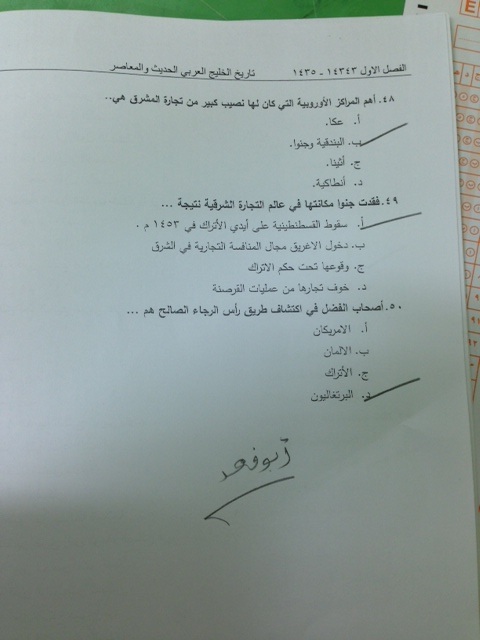 الفصل الاول ١٤٣٤٣ - ١٤٣٥ تاريخ الخليج العربي الحديث والمعاصر
٤٨. أهم المراكز الأوروبية التي كان لها نصيب كبير من تجارة المشرق هي..
أ. عكا.
ب. البندقية وجنوا.
ج. أثينا.
د. أنطاكية.
٤٩. فقدت جنوا مكانتها في عالم التجارة الشرقية نتيجة ...
أ. سقوط القسطنطينية على أيدي الأتراك في ١٤٥٣ م .
ب. دخول الاغريق مجال المنافسة التجارية في الشرق
ج. وقوعها تحت حكم الاتراك
د. خوف تجارها من عمليات القرصنة
٥٠. أصحاب الفضل في اكتشاف طريق رأس الرجاء الصالح هم ...
أ. الامريكان
ب. الالمان
ج. الأتراك
د. البرتغاليون
أبو فهد